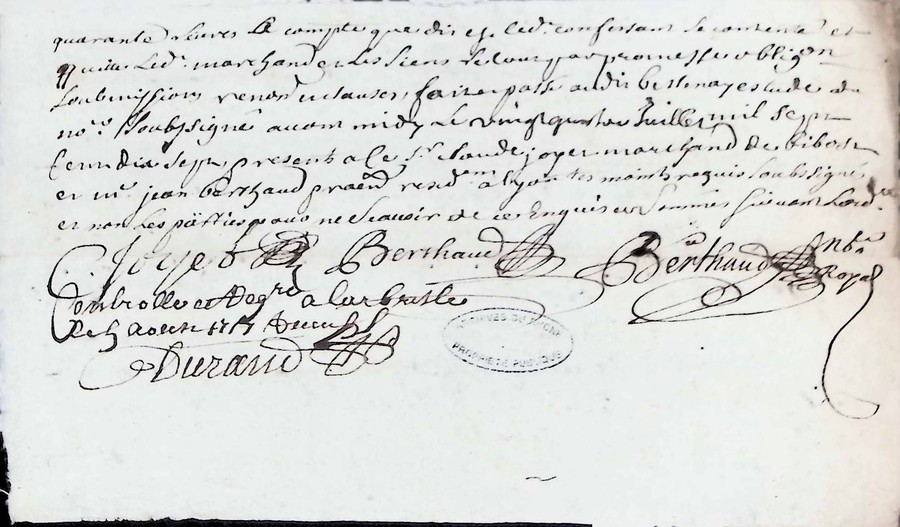 quarante livres le compte que dis est led. confessant se contente et
quitte led. marchand et les siens le tout par promesse oblig.on
soubmissions renon clauses, fait et passé audit estude du
no.re soubsigné avant midy le vingt quatre Juillet mil sept
cent dix sept present a ce s.r claude joyet marchand de
et m.e jean berthaud pra.en resid.am a lyon tesmoins requis soubsignés
et non les parties pour ne scavoir de ce enquis et sommes suivant l'ord.ce
C. Joyet Berthaud Berthaud No.re Royal
Controllé et Regré a larbraille
le 5 Aoust 1717
Durand
ARCHIVES DU
PROPRIÉTÉ PUBLIQUE